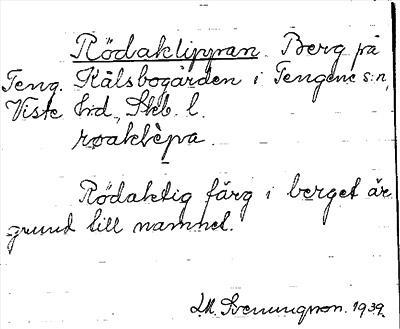 Rödaklippan. Berg på
Teng. Kålsbogården i Tengene s:n,
Viste hrd, Skb. l.
røaklèpa.
Rödaktig färg i berget är
grund till namnet.
Dll. Svenungsson. 1939.